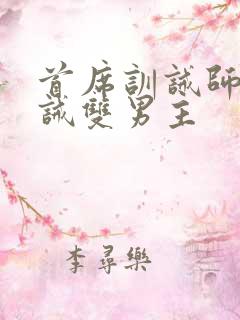 首席訓誡師
誡雙男主
李尋樂